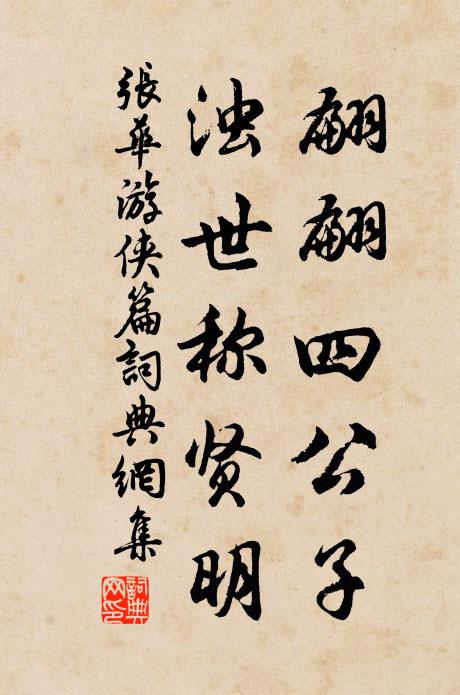 翩翩四公子
浊世称贤明
張華游侠篇詞典網集
詞典網印